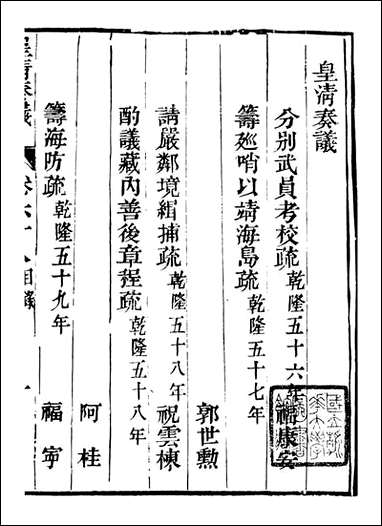 皇清奏議
分別武員考校疏 乾隆五十六年 福康安
籌廵哨以靖海島疏 乾隆五十七年
郭世勲
請嚴鄰境緝捕疏 乾隆五十八年 祝雲棟
酌議藏內善後章程疏 乾隆五十八年
阿桂
籌海防疏 乾隆五十九年 福寜
皇清奏議 卷六十八目錄 一